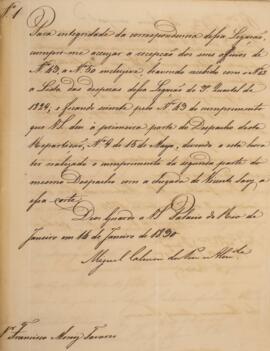 Nº 1
Para integridade da correspondencia dessa Legação,
cumpre-me accusar a recepção dos seus officios de
Nº 43, a Nº 50 inclusive, havendo recebido com o Nº 45
a Lista das despezas dessa Legação do 3º Quartel de
1829, e ficando sciente pelo Nº 43 do cumprimento
que V.S. deu á primeira parte do Despacho desta
Repartição, Nº 4 de 15 de Mayo, devendo a esta hora
ter realizado o cumprimento da segunda parte do
mesmo Despacho com a chegada de
essa corte.
Deos Guarde a V.S. Palacio do Rio de
Janeiro em 16 de Janeiro de 1830
Miguel Calmon du Pin e Almda
Sr. Francisco Tavares